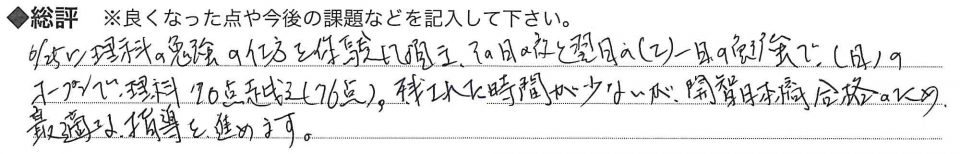 ◆総評 ※良くなった点や今後の課題などを記入して下さい。
理科の勉強の仕方を体験して頂き、その日の夜と翌日の(土)一日の勉強で、(日)の
オープンで、理科70点越え(76点)。残された時間が少ないが、開智日本橋合格のため、
最適な指導を進めます。